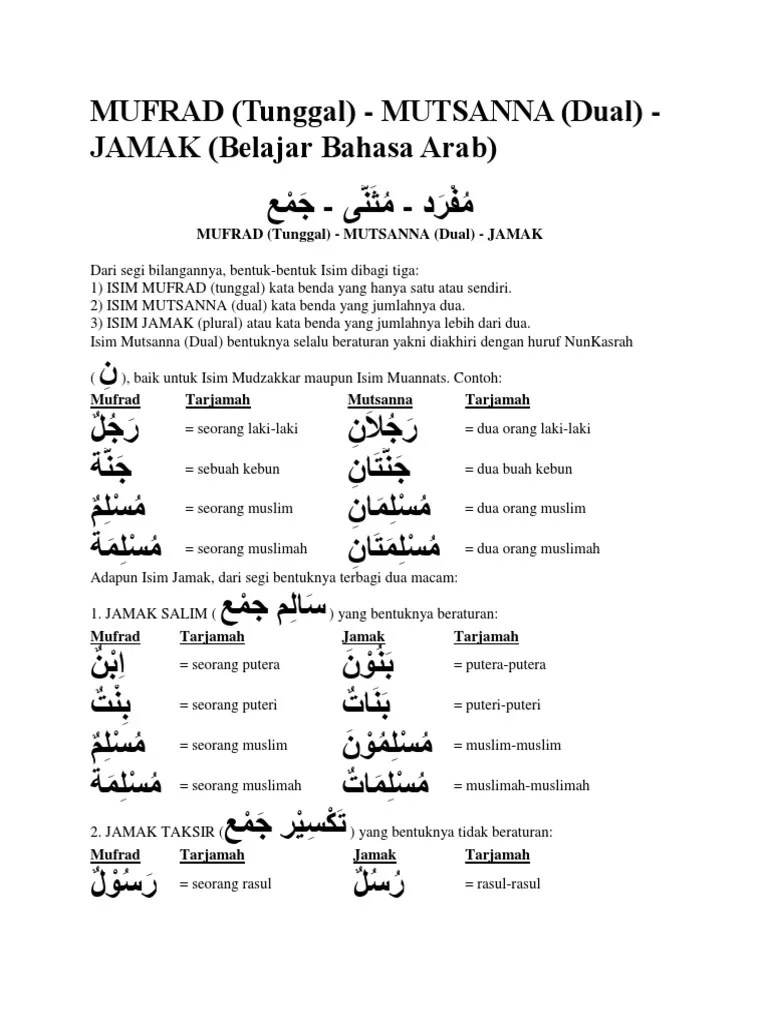 MUFRAD (Tunggal) - MUTSANNA (Dual) -
JAMAK (Belajar Bahasa Arab)
مُفْرَد - مُثَنَّى - جَمْع
MUFRAD (Tunggal) - MUTSANNA (Dual) - JAMAK
Dari segi bilangannya, bentuk-bentuk Isim dibagi tiga:
1) ISIM MUFRAD (tunggal) kata benda yang hanya satu atau sendiri.
2) ISIM MUTSANNA (dual) kata benda yang jumlahnya dua.
3) ISIM JAMAK (plural) atau kata benda yang jumlahnya lebih dari dua.
Isim Mutsanna (Dual) bentuknya selalu beraturan yakni diakhiri dengan huruf NunKasrah
( نِ ), baik untuk Isim Mudzakkar maupun Isim Muannats. Contoh:
Mufrad Tarjamah Mutsanna Tarjamah
رَجُلٌ = seorang laki-laki رَجُلاَنِ = dua orang laki-laki
جَنَّة = sebuah kebun جَنَّتَانِ = dua buah kebun
مُسْلِمٌ = seorang muslim مُسْلِمَانِ = dua orang muslim
مُسْلِمَة = seorang muslimah مُسْلِمَتَانِ = dua orang muslimah
Adapun Isim Jamak, dari segi bentuknya terbagi dua macam:
1. JAMAK SALIM ( سَالِم جمْع ) yang bentuknya beraturan:
Mufrad Tarjamah Jamak Tarjamah
اِبْنٌ = seorang putera بَنُوْنَ = putera-putera
بِنْتٌ = seorang puteri بَنَاتٌ = puteri-puteri
مُسْلِمٌ = seorang muslim مُسْلِمُوْنَ = muslim-muslim
مُسْلِمَة = seorang muslimah مُسْلِمَاتٌ = muslimah-muslimah
2. JAMAK TAKSIR (تَكْسِيْر جَمْع ) yang bentuknya tidak beraturan:
Mufrad Tarjamah Jamak Tarjamah
رَسُوْلٌ = seorang rasul رُسُلٌ = rasul-rasul